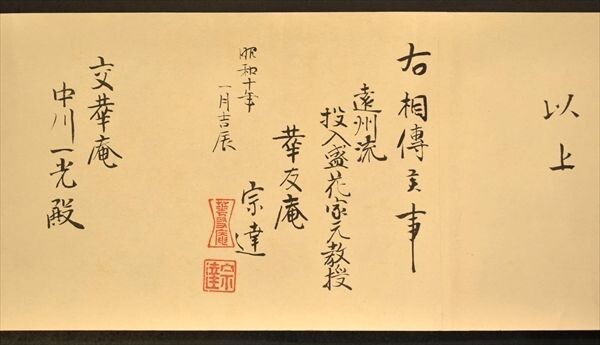 以上
右相傳之事
遠州流
投入盛花家元教授
華友庵
宗達
昭和十年
一月吉辰
交華庵
中川一光殿